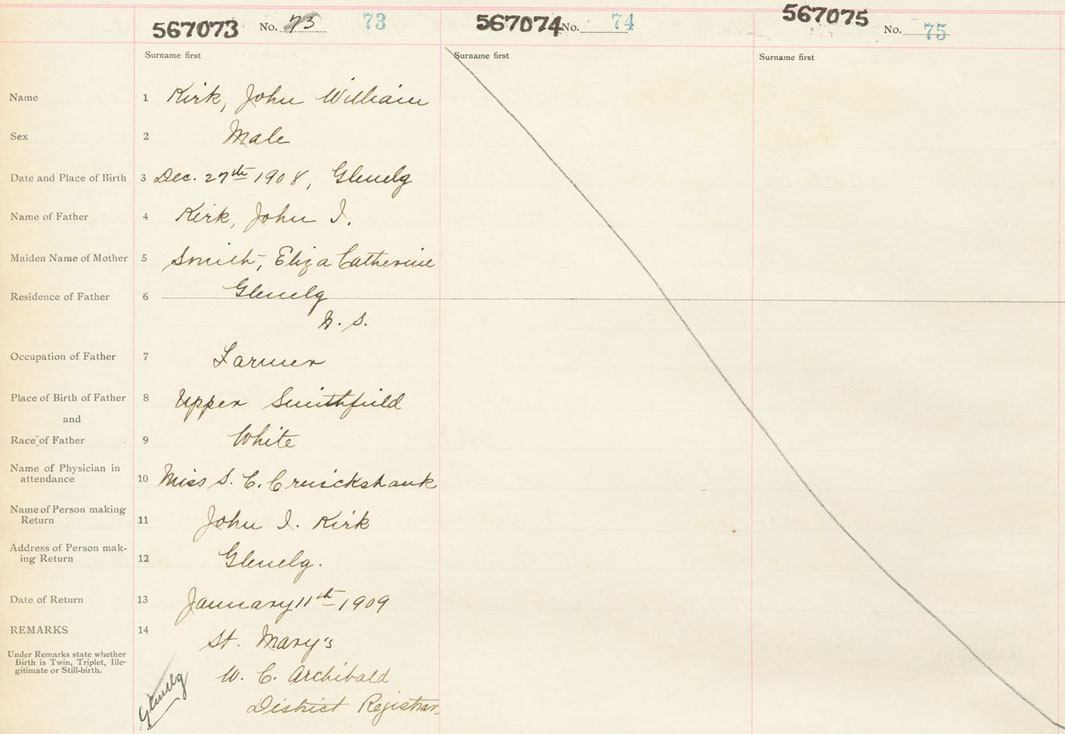 567073 No. 73 73 567074 No. 74 567075 No. 75
Surname first Surname first Surname first
Name 1 Kirk, John William
Sex 2 Male
Date and Place of Birth 3 Dec. 27th 1908, Glenelg
Name of Father 4 Kirk, John I.
Maiden Name of Mother 5 Smith, Eliza Catherine
Residence of Father 6 Glenelg
N. S.
Occupation of Father 7 Farmer
Place of Birth of Father 8 Upper Smithfield
and
Race of Father 9 White
Name of Physician in
attendance 10 Miss S. C. Cruickshank
Name of Person making
Return 11 John I. Kirk
Address of Person mak-
ing Return 12 Glenelg.
Date of Return 13 January 11th 1909
REMARKS 14 St. Mary's
Under Remarks state whether
Birth is Twin, Triplet, Ille-
gitimate or Still-birth.
W. C. Archibald
District Registrar
Glenelg